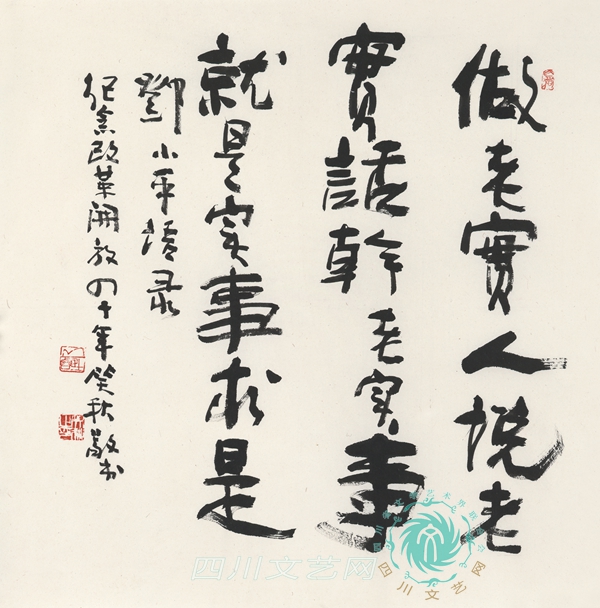 做老實人説老
實話幹老实事
就是实事求是
鄧小平語录
纪念改革開放四十年笑秋敬书
四川文艺网
四川文艺网